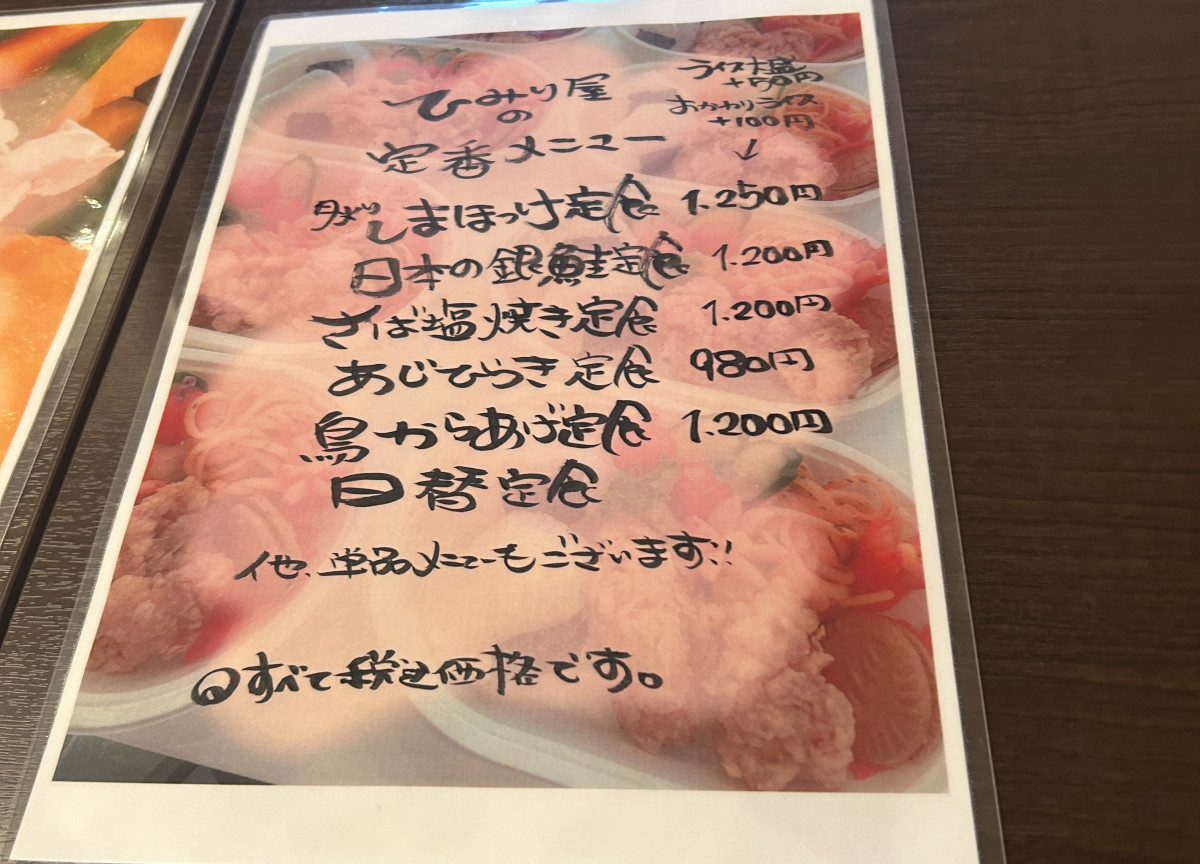 ひみり屋
の
定番メニュー
ライス大盛
+50円
おかわりライス
+100円
↓
しまほっけ定食 1.250円
日本の銀鮭定食 1.200円
さば塩焼き定食 1.200円
あじひらき定食 980円
鳥からあげ定食 1.200円
日替定食
他、単品メニューもございます!!
すべて税込価格です。